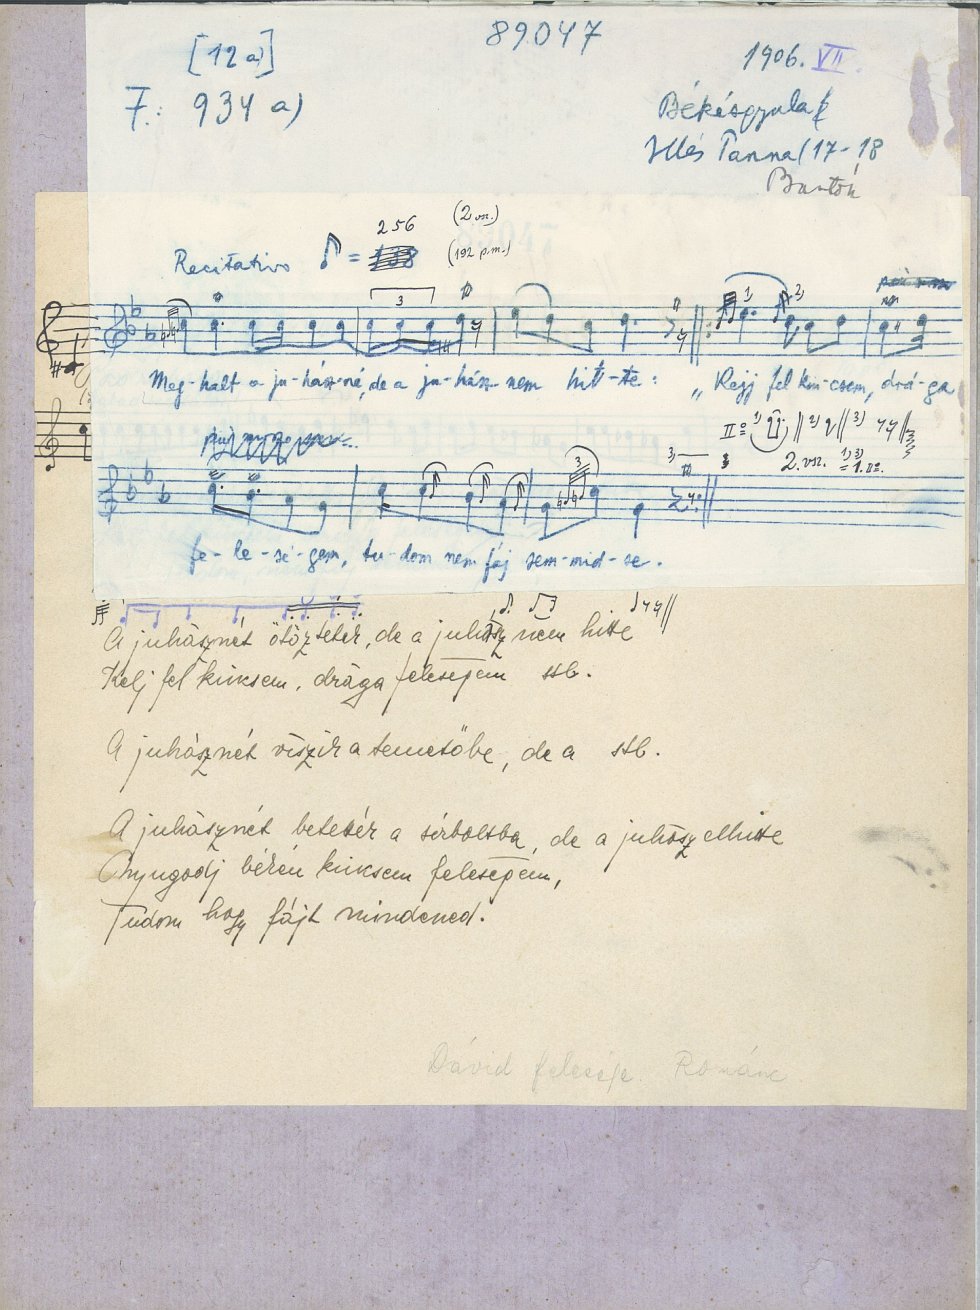 89047
[12a)]
1906. VII.
F.: 934 a)
Békésgyula
Illés Panna (17-18
Bartók
256 (2. vsz.)
Recitativo ♪ = 138 (192 p.m.)
3
1) 2)
Meg-halt a ju-hász-né, de a ju-hász nem hit-te: „Kejj fel kin-csem, drá-ga
II= 1) || 2) || 3)
3) 2. vsz. 1) 3) = 1. sz.
3
fe-le-sé-gem, tu-dom nem fáj sem-mid-se.
A juhásznét öltöztetér, de a juhász nem hitte
Kelj fel kincsem, drága feleségem stb.
A juhásznét viszik a temetőbe, de a stb.
A juhásznét beteték a sírboltba, de a juhász elhitte
Nyugodj békén kincsem feleségem,
Tudom hogy fájt mindened.
Dávid felesége. Románc